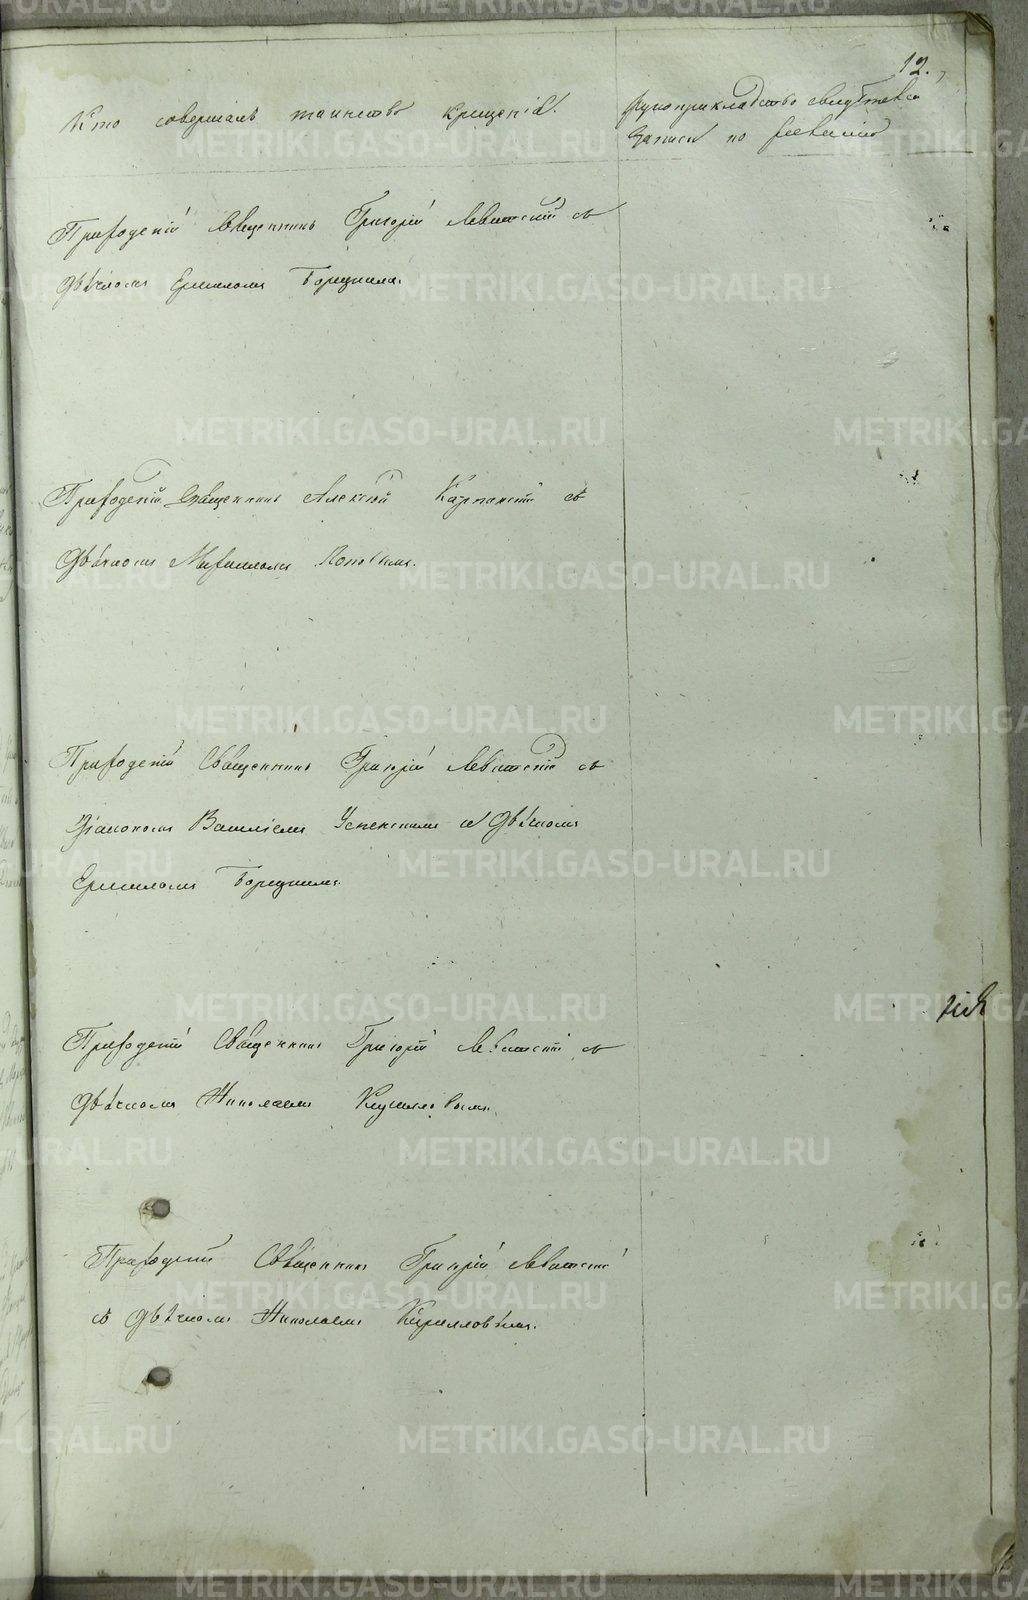 12.
Кто совершалъ таинство крещенія.
Рукоприкладство свидѣтелей
записи по желанію
Приходскій Священникъ Григорій Левитскій съ
Дьячкомъ Ермиломъ Борецкимъ.
Приходскій Священникъ Алексій Карпинскій съ
Дьячкомъ Михаиломъ Поповымъ.
Приходскій Священникъ Григорій Левитскій съ
Діакономъ Василіемъ Успенскимъ и Дьячкомъ
Ермиломъ Борецкимъ.
Приходскій Священникъ Григорій Левитскій съ
Дьячкомъ Николаемъ Кирилловымъ.
Приходскій Священникъ Григорій Левитскій
съ Дьячкомъ Николаемъ Кирилловымъ.
METRIKI.GASO-URAL.RU